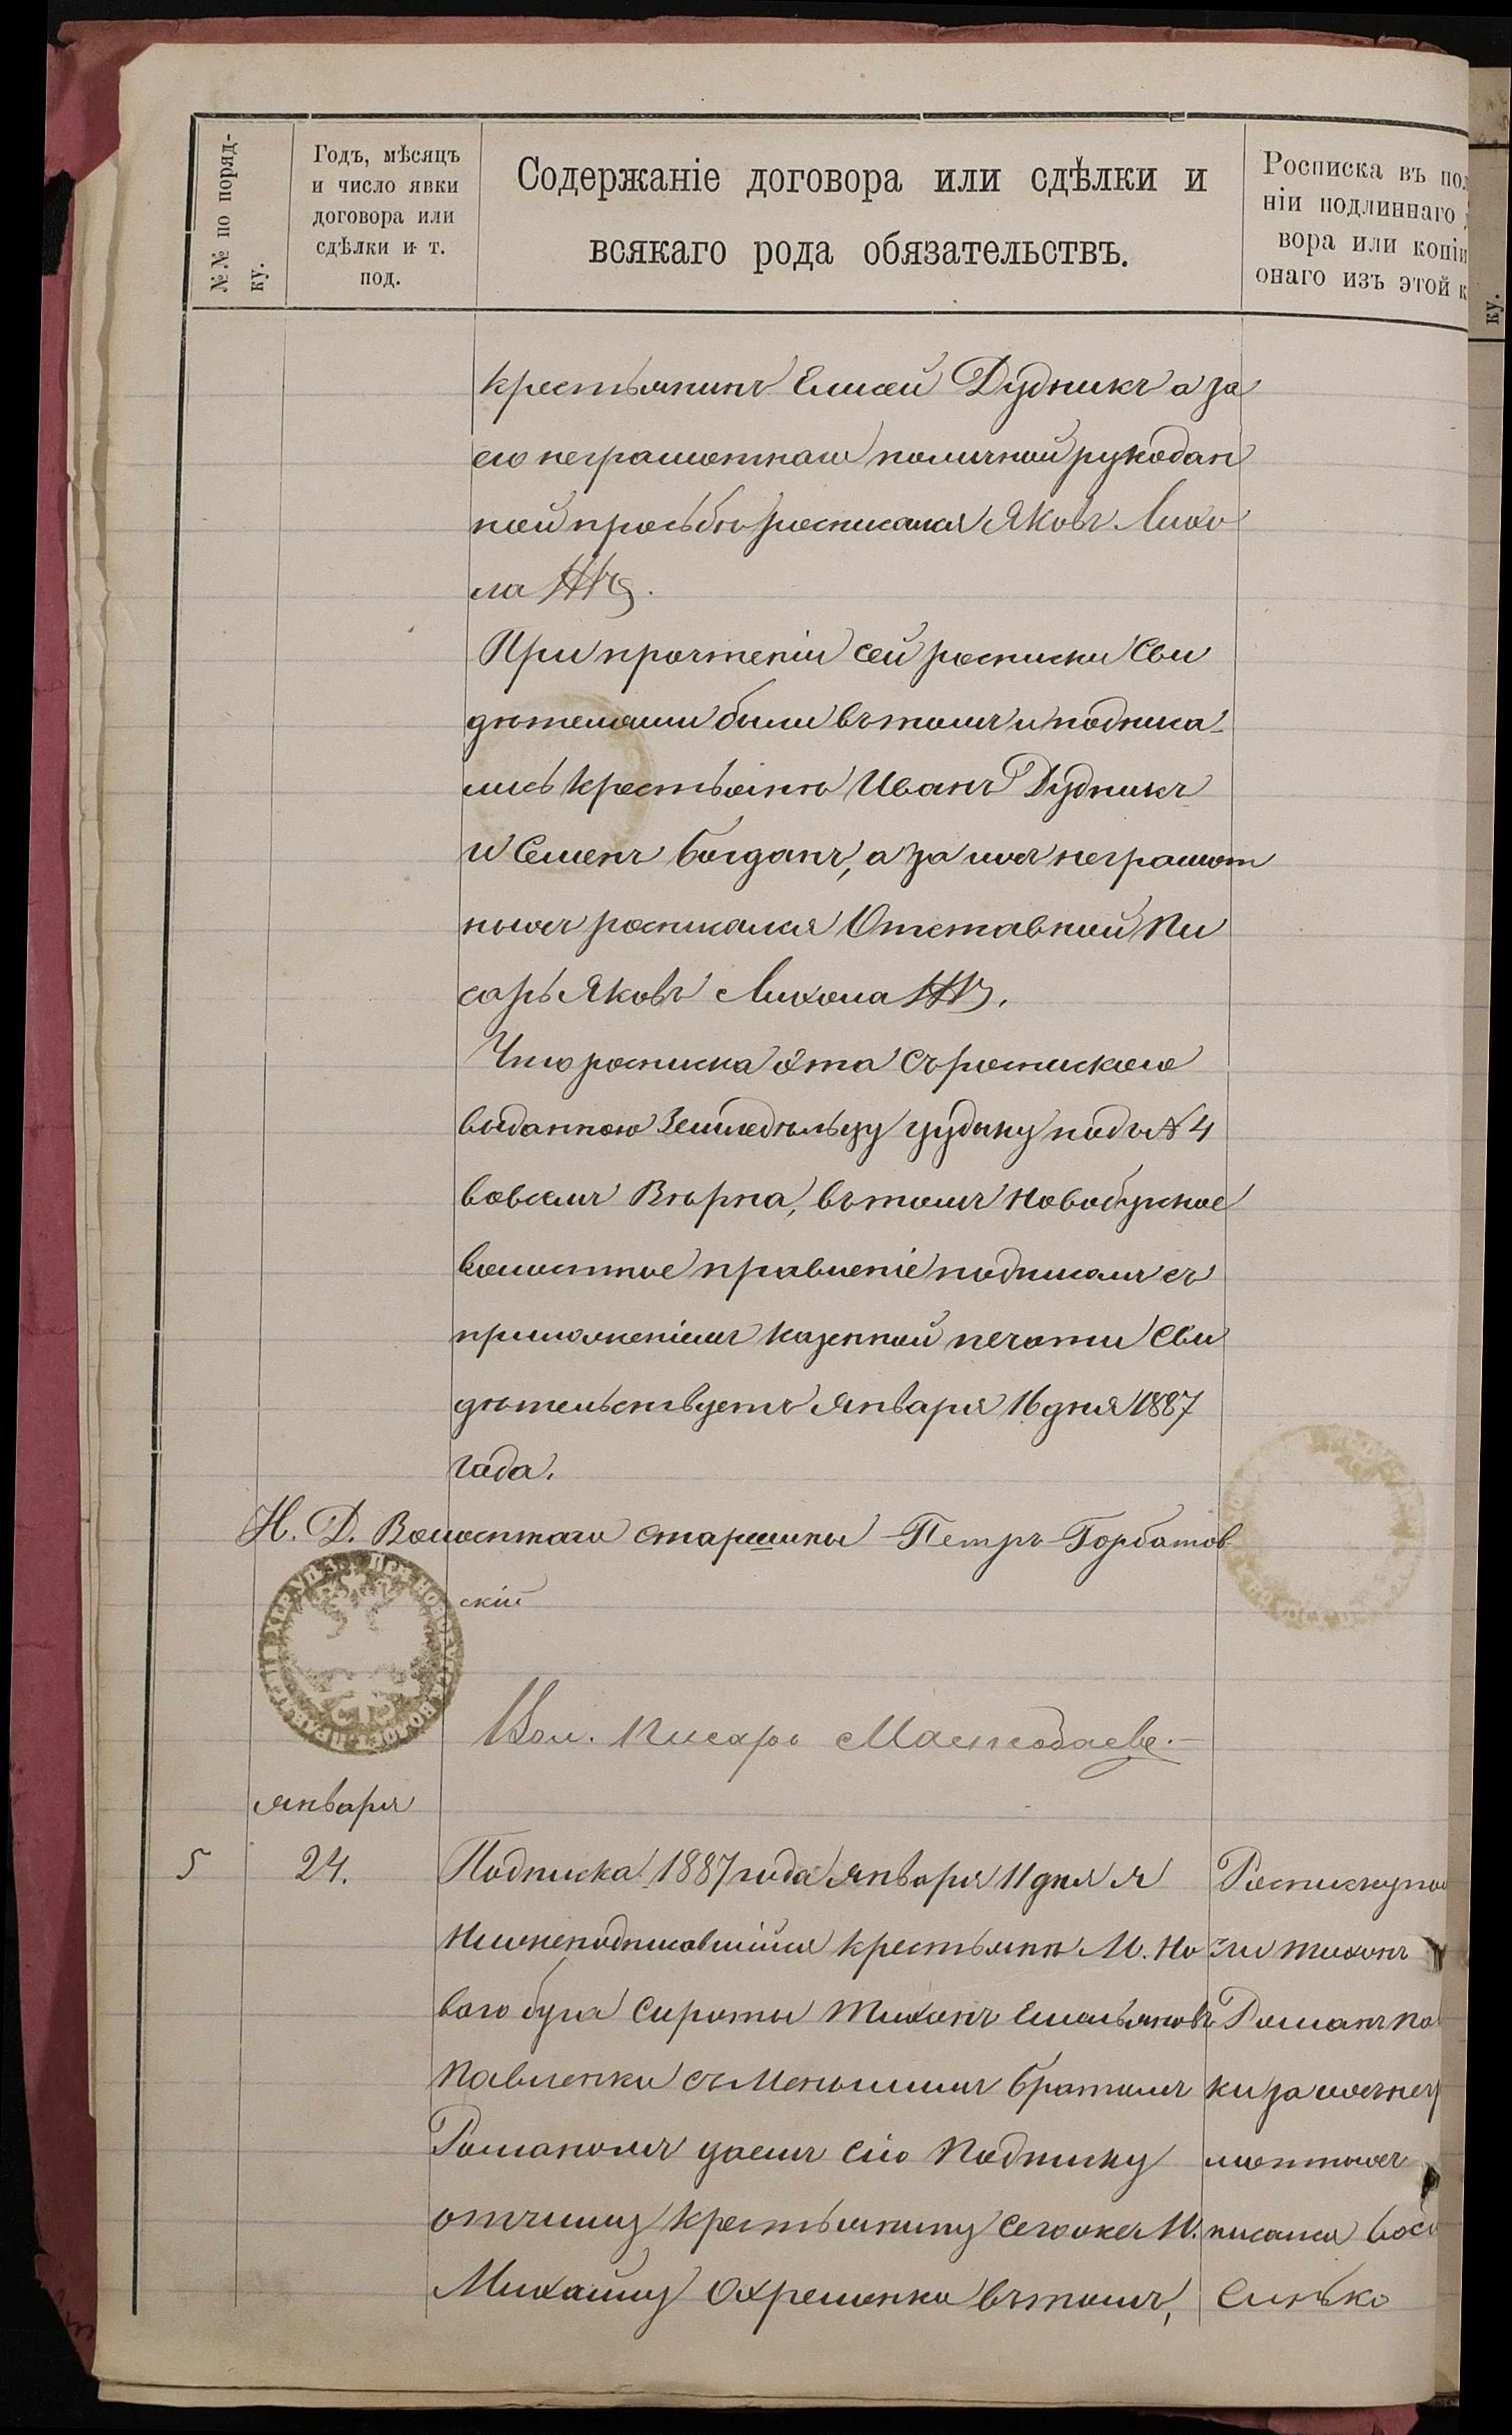 №№ по поряд-
ку.
Годъ, мѣсяцъ
и число явки
договора или
сдѣлки и т.
под.
Содержаніе договора или сдѣлки и
всякаго рода обязательствъ.
Росписка въ пол
ніи подлиннаго
вора или копіи
онаго изъ этой к
ку.
крестьянинъ Елисей Дудникъ а за
его неграмотнаго поличной рукодан
ной прозьбѣ росписался Яковъ Лихо
ла
При прочтеніи сей росписки Сви
дѣтелями были въ томъ и подписа-
лись крестьянѣ Иванъ Дудникъ
и Семенъ Богданъ, а за ихъ неграмот
ныхъ росписался Отставной Пи
сарь Яковъ Лихола
Что росписка эта съ роспискою
выданною Земледѣльцу Цудыку подъ № 4
вовсемъ Вѣрна, въ томъ Новобугское
волостное правленіе подписомъ съ
приложеніемъ казенной печати Сви
дѣтельствуетъ Января 16 дня 1887
года.
И. Д. Волостнаго старшины Петръ Горбатов
скій
Вол. Писарь
января
5
24.
Подписка 1887 года января 11 дня я
Нижеподписавшійся крестьянѣ М. Но
вого буга Сироты Тихонъ Емельяновъ
Павленки съ Меньшимъ братомъ
Романомъ даемъ сію Подписку
отчиму крестьянину сегожъ М.
Михайлу Охременко въ томъ,
Росписку пол
ли Тихонъ
Романъ Па
ки за ихъ нег
мотныхъ
писался
Синько